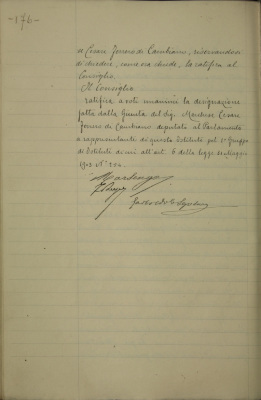 -176-
di Cesare Ferrero di Cambiano, riservandosi
di chiedere, come ora chiede, la ratifica al
Consiglio.
Il Consiglio
ratifica a voti unanimi la designazione
fatta dalla Giunta del Sig. Marchese Cesare
Ferrero di Cambiano deputato al Parlamento
a rappresentante di questo Istituto pel 2° Gruppo
di Istituti di cui all'art. 6 della legge
1902 N°